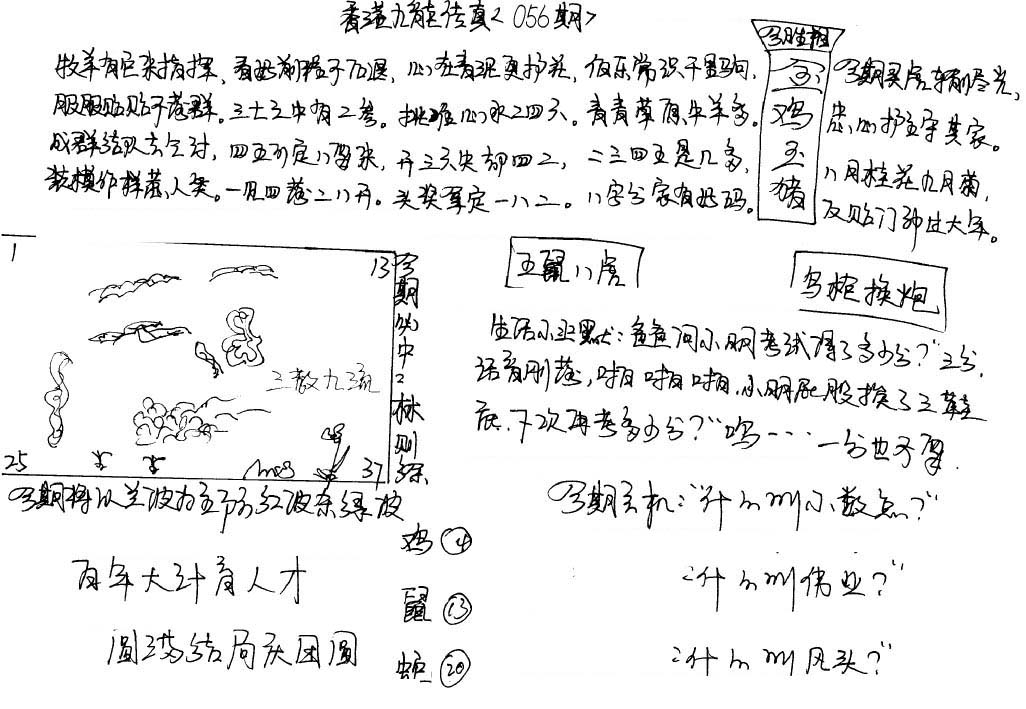 香港九龍传真<056期>
牧羊有巨来指挥，看此前程于后退，心在看泥更护花，伯乐常识千里马，
服服贴贴不落群。三十三中有二参。挑唯心水二四六。青青草原牛羊多。
成群结队去全对，四五可定八字来，开三六失却四二，二三四五是几多，
装模作样蒙人类。一见四落二八开。头奖单定一八二。八字分家有此码。
今期生肖
金
鸡
玉
猪
今期买虎车前尽光，
忠心护主守其家。
八月桂花九月菊，
反贴门神过大年。
1
13
今期必中：林则徐
三教九流
25
37
五鼠八虎
鸟枪换炮
生活小幽默：爸爸问小明考试得了多少分？"三分，
话音刚落，啪啪啪，小明屁股挨了三鞋
底，下次再考多少分？"呜……一分也不要
今期将以兰波为主防红波杂绿波
鸡 ④
鼠 ⑬
蛇 ⑳
百年大计育人才
圆满结局庆团圆
今期玄机："什么叫小数点？"
"什么叫伟业？"
"什么叫风头？"